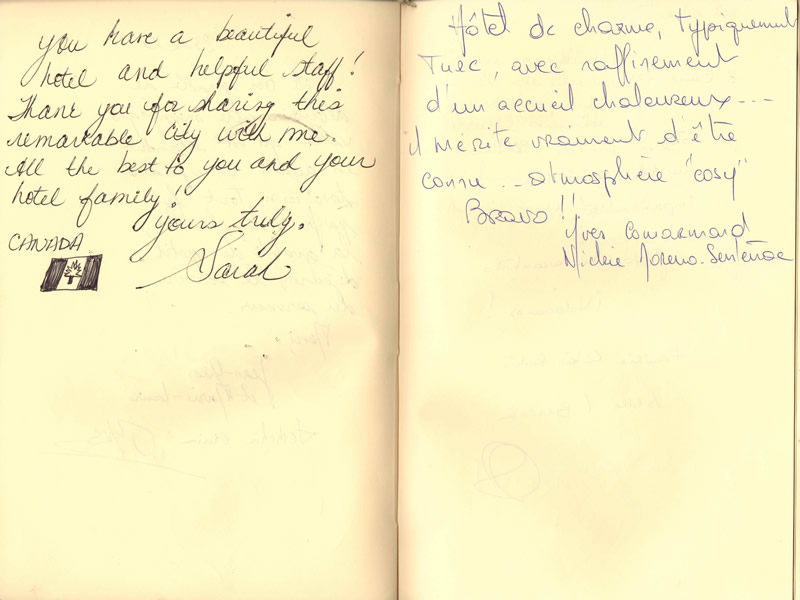 you have a beautiful
hotel and helpful staff!
Thank you for sharing this
remarkable city with me.
All the best to you and your
hotel family!
yours truly,
Sarah
CANADA
Hôtel de charme, typiquement
Turc, avec raffinement
d'un accueil chaleureux ---
il mérite vraiment d'être
connu -- atmosphère "cosy"
Bravo !!
Yves Comarmond